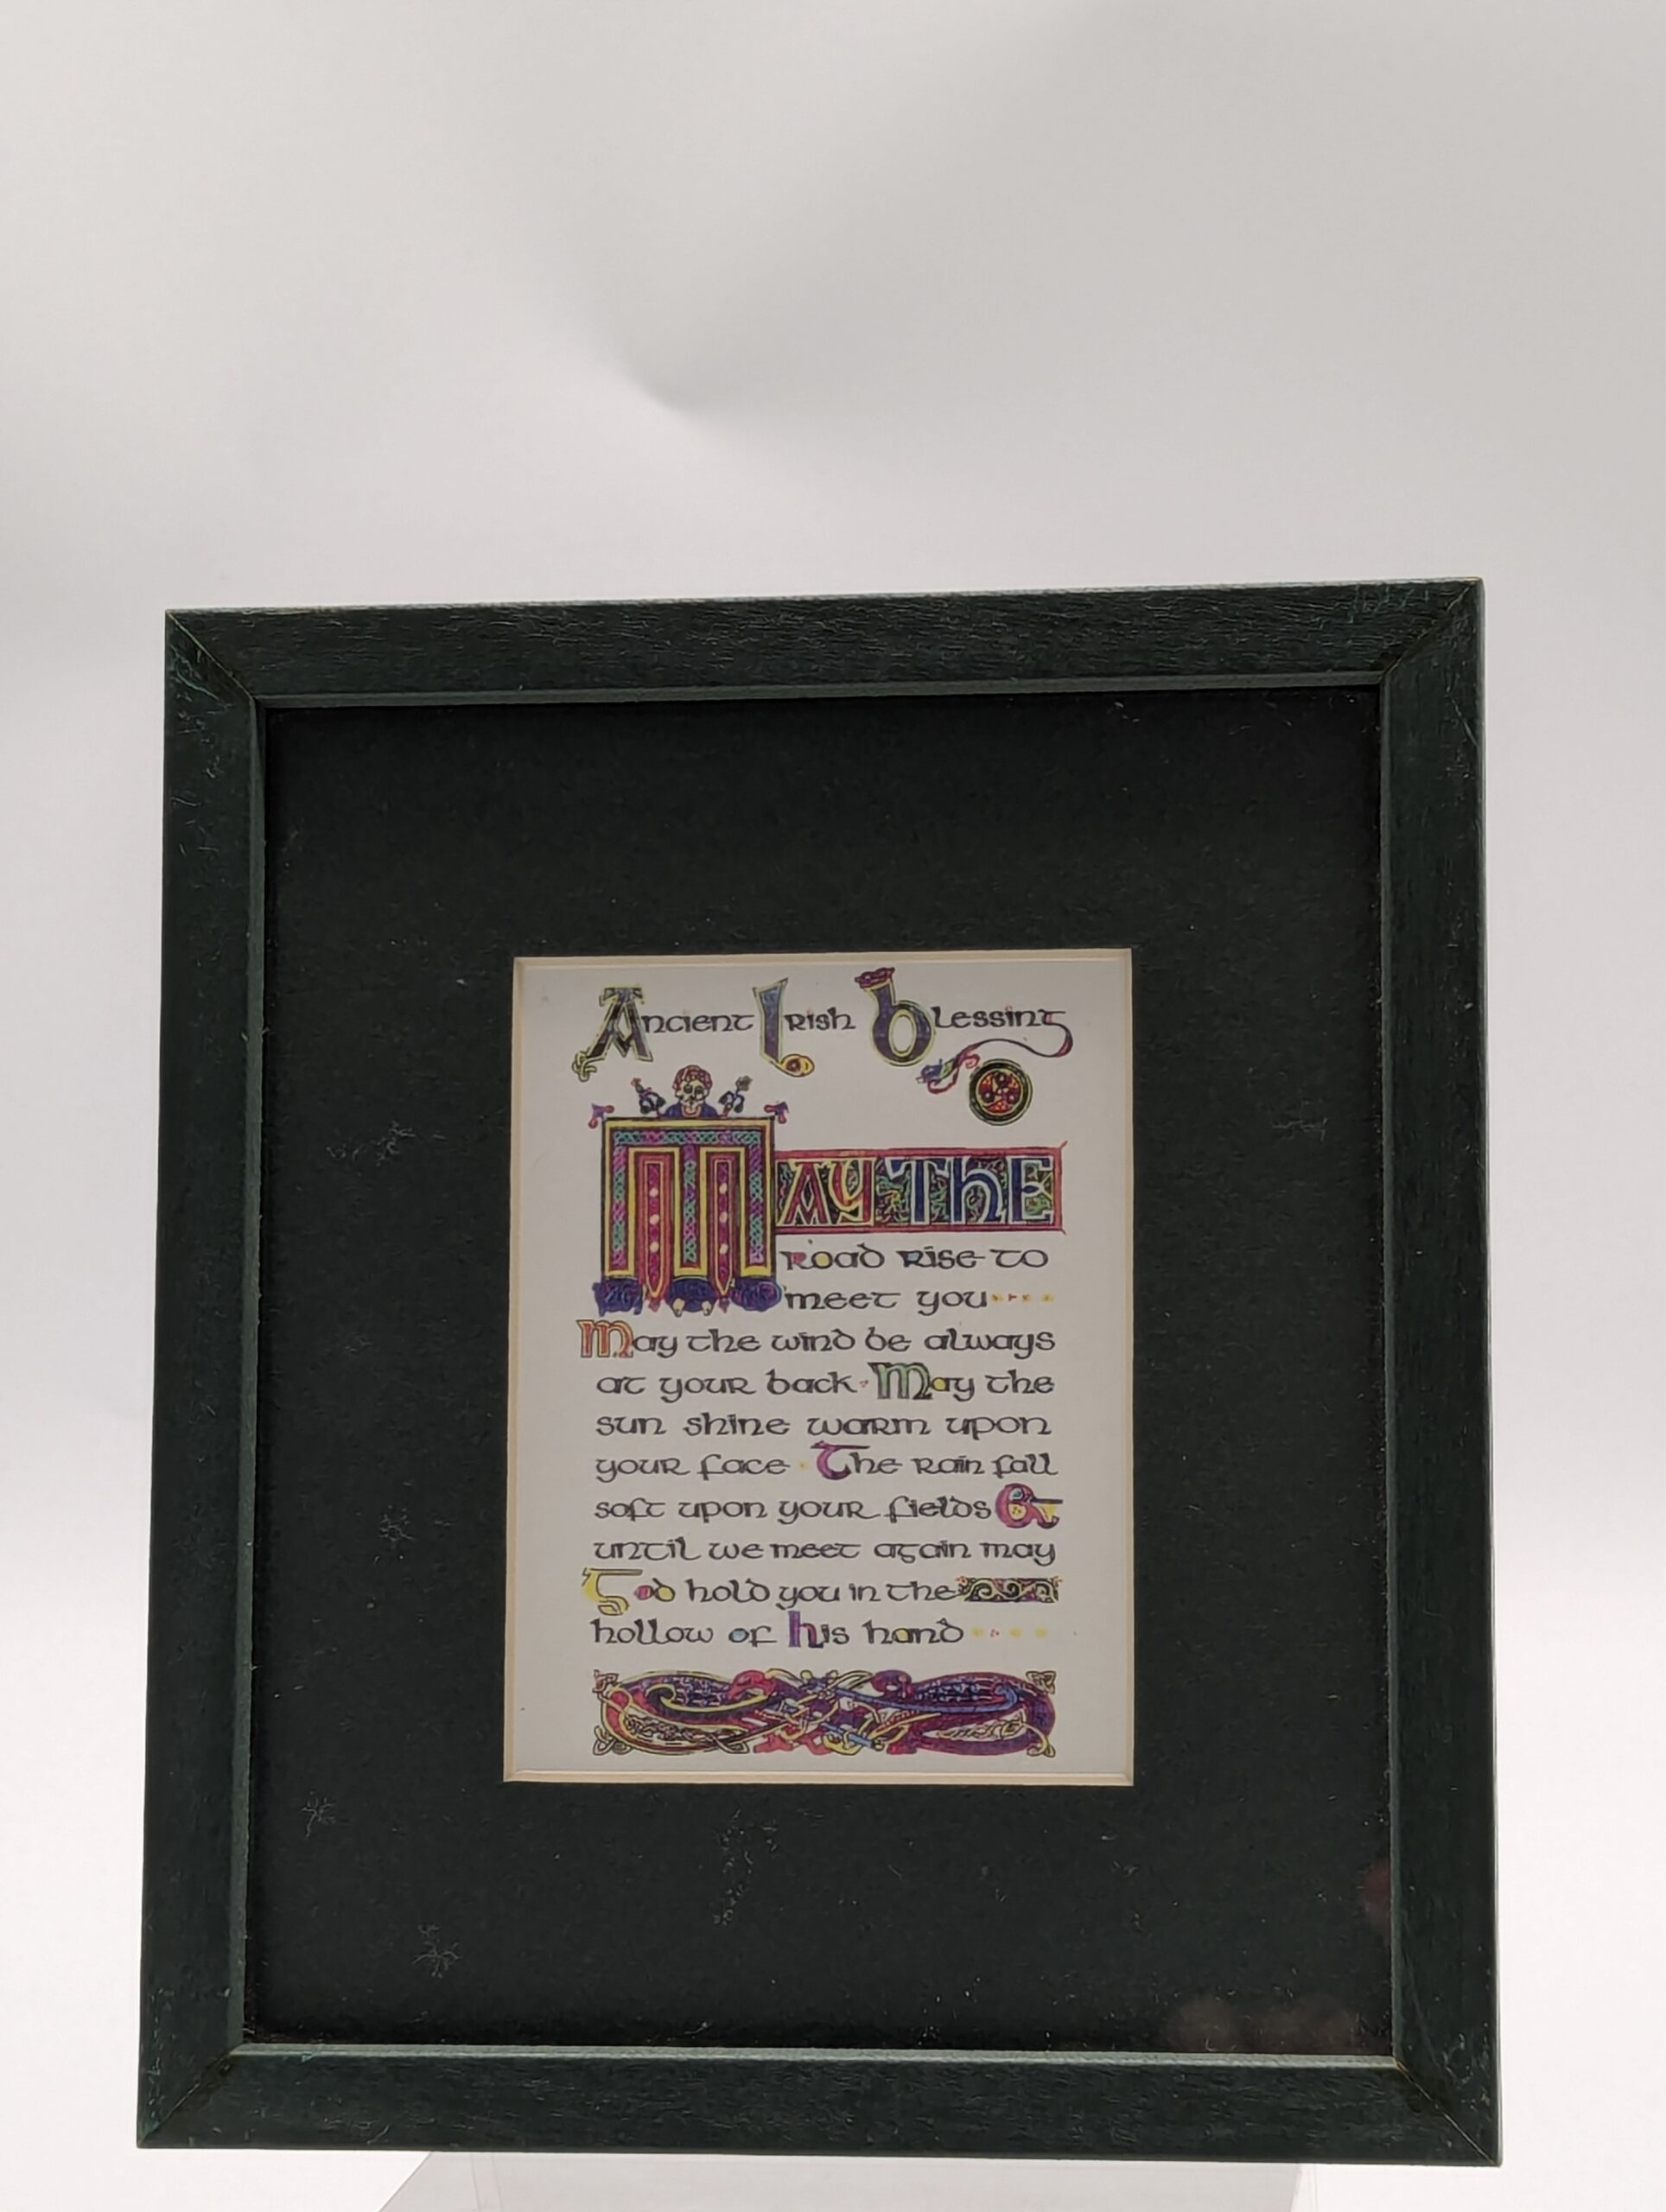 Ancient Irish Blessing
MAY THE
road rise to
meet you
May the wind be always
at your back May the
sun shine warm upon
your face The rain fall
soft upon your fields &
until we meet again may
God hold you in the
hollow of his hand